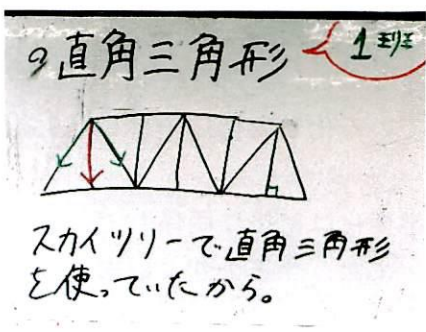 の直角三角形
スカイツリーで直角三角形
を使っていたから。